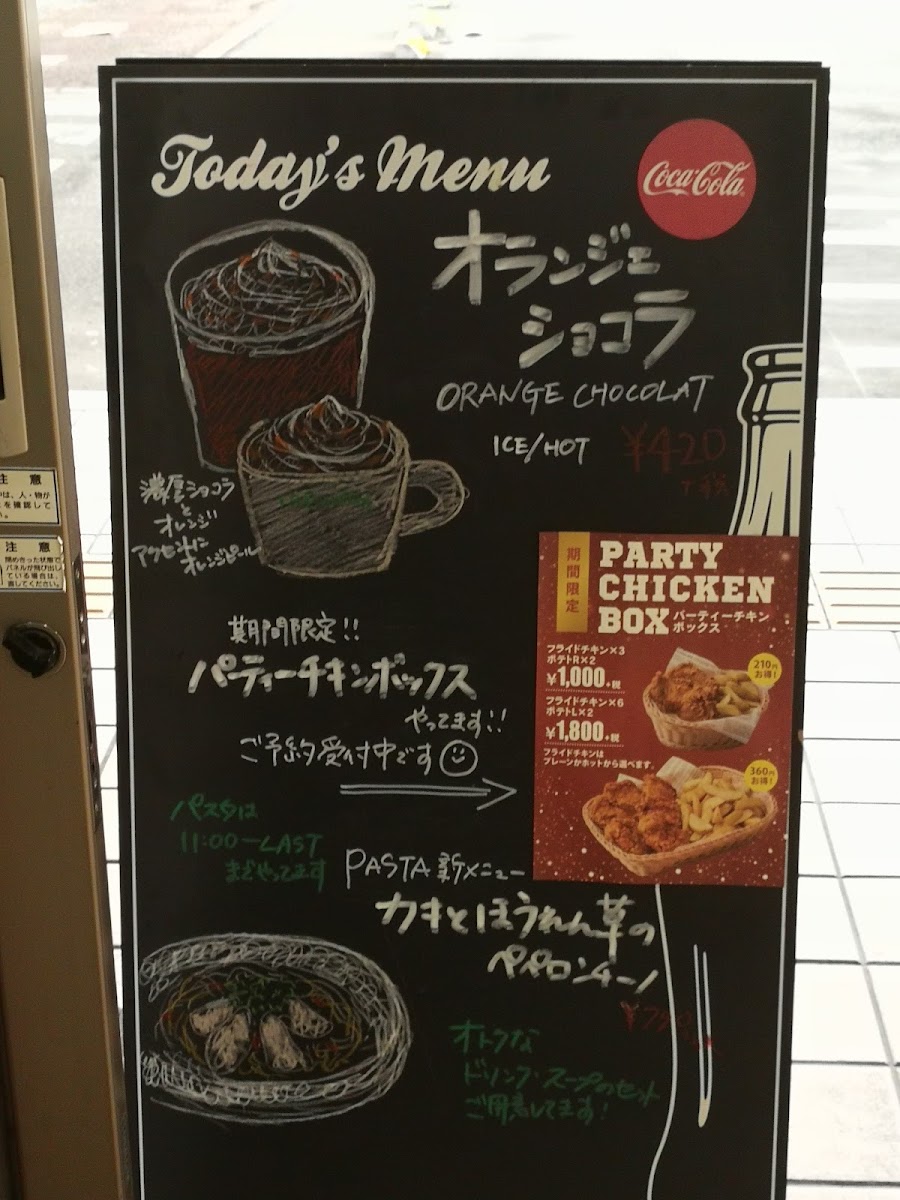 Today's Menu
Coca-Cola
オランジェ
ショコラ
ORANGE CHOCOLAT
ICE/HOT
¥420
+税
濃厚ショコラ
と
オレンジ
アクセントに
オレンジピール
期間限定!!
パーティーチキンボックス
やってます!!
ご予約受付中です
期間限定
PARTY
CHICKEN
BOX
パーティーチキン
ボックス
フライドチキン×3
ポテトR×2
¥1,000+税
210円
お得!
フライドチキン×6
ポテトL×2
¥1,800+税
フライドチキンは
プレーンかホットから選べます。
360円
お得!
パスタは
11:00ーLAST
までやってます
PASTA 新メニュー
カキとほうれん草の
ペペロンチーノ
オトクな
ドリンク・スープのセット
ご用意してます!
注意
は、人・物が
を確認して
い。
注意
閉め切った状態で
パネルが飛び出し
ている場合は、
直してください。